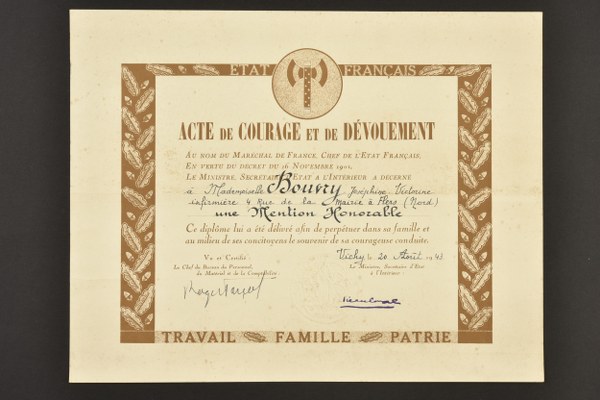 ETAT FRANÇAIS
ACTE DE COURAGE ET DE DÉVOUEMENT
AU NOM DU MARÉCHAL DE FRANCE, CHEF DE L'ETAT FRANÇAIS,
EN VERTU DU DÉCRET DU 16 NOVEMBRE 1901,
LE MINISTRE, SECRÉTAIRE D'ETAT A L'INTÉRIEUR A DÉCERNÉ
à Mademoiselle Bouvry Joséphine Victorine
infirmière 4 Rue de la Mairie à Flers (Nord)
une Mention Honorable
Ce diplôme lui a été délivré afin de perpétuer dans sa famille et
au milieu de ses concitoyens le souvenir de sa courageuse conduite.
Vu et Vérifié :
Le Chef du Bureau du Personnel,
du Matériel et de la Comptabilité
Vichy, le 20 Avril 1943
Le Ministre, Secrétaire d'Etat
à l'Intérieur :
TRAVAIL FAMILLE PATRIE